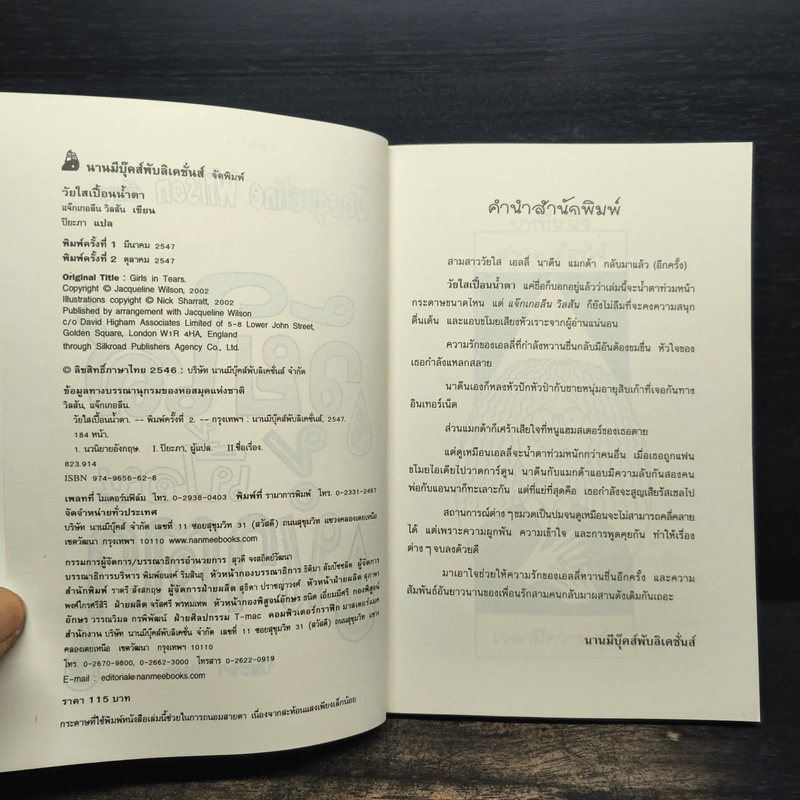 นานมีบุ๊คส์พับลิเคชั่นส์ จัดพิมพ์
วัยใสเปื้อนน้ำตา
แจ๊กเกอลีน วิลสัน เขียน
ปิยะภา แปล
พิมพ์ครั้งที่ 1 มีนาคม 2547
พิมพ์ครั้งที่ 2 ตุลาคม 2547
Original Title : Girls in Tears.
Copyright © Jacqueline Wilson, 2002
Illustrations copyight © Nick Sharratt, 2002
Published by arrangement with Jacqueline Wilson
c/o David Higham Associates Limited of 5-8 Lower John Street,
Golden Square, London W1R 4HA, England
through Silkroad Publishers Agency Co., Ltd.
© ลิขสิทธิ์ภาษาไทย 2546 : บริษัท นานมีบุ๊คส์พับลิเคชั่นส์ จำกัด
ข้อมูลทางบรรณานุกรมของหอสมุดแห่งชาติ
วิลสัน, แจ๊กเกอลีน.
วัยใสเปื้อนน้ำตา. -- พิมพ์ครั้งที่ 2. -- กรุงเทพฯ : นานมีบุ๊คส์พับลิเคชั่นส์, 2547.
184 หน้า.
1. นวนิยายอังกฤษ. I. ปิยะภา, ผู้แปล. II.ชื่อเรื่อง.
823.914
ISBN 974-9656-62-8
เพลทที่ โมเดอร์นฟิล์ม โทร. 0-2938-0403 พิมพ์ที่ รามาการพิมพ์ โทร. 0-2331-2467
จัดจำหน่ายทั่วประเทศ
บริษัท นานมีบุ๊คส์ จำกัด เลขที่ 11 ซอยสุขุมวิท 31 (สวัสดี) ถนนสุขุมวิท แขวงคลองเตยเหนือ
เขตวัฒนา กรุงเทพฯ 10110 www.nanmeebooks.com
กรรมการผู้จัดการ/บรรณาธิการอำนวยการ สุวดี จงสถิตย์วัฒนา
บรรณาธิการบริหาร พิมพ์อนงค์ ริมสินธุ หัวหน้ากองบรรณาธิการ ธิติมา สัมปัชชลิต ผู้จัดการ
สำนักพิมพ์ ราตรี สังสกฤษ ผู้จัดการฝ่ายผลิต สุธิดา ปราชญาวงศ์ หัวหน้าฝ่ายผลิต สุภาพา
พงศ์ไกรศรีสิริ ฝ่ายผลิต จรัสศรี พรหมเทพ หัวหน้ากองพิสูจน์อักษร ธนิต เอี่ยมมีศรี กองพิสูจน์
อักษร วรรณวิมล กรพิพัฒน์ ฝ่ายศิลปกรรม T-mac คอมพิวเตอร์กราฟิก มาสเตอร์แมพ
สำนักงาน บริษัท นานมีบุ๊คส์พับลิเคชั่น จำกัด เลขที่ 11 ซอยสุขุมวิท 31 (สวัสดี) ถนนสุขุมวิท แขวง
คลองเตยเหนือ เขตวัฒนา กรุงเทพฯ 10110
โทร. 0-2670-9800, 0-2662-3000 โทรสาร 0-2622-0919
E-mail : editorial@nanmeebooks.com
ราคา 115 บาท
กระดาษที่ใช้พิมพ์หนังสือเล่มนี้ช่วยในการถนอมสายตา เนื่องจากสะท้อนแสงเพียงเล็กน้อย
คำนำสำนักพิมพ์
สามสาววัยใส เอลลี่ นาดีน แมกด้า กลับมาแล้ว (อีกครั้ง)
วัยใสเปื้อนน้ำตา แค่ชื่อก็บอกอยู่แล้วว่าเล่มนี้จะน้ำตาท่วมหน้า
กระดาษขนาดไหน แต่ แจ๊กเกอลีน วิลสัน ก็ยังไม่ลืมที่จะคงความสนุก
ตื่นเต้น และแอบขโมยเสียงหัวเราะจากผู้อ่านแน่นอน
ความรักของเอลลี่ที่กำลังหวานชื่นกลับมีอันต้องขมขื่น หัวใจของ
เธอกำลังแหลกสลาย
นาดีนเองก็หลงหัวปักหัวปำกับชายหนุ่มอายุสิบเก้าที่เจอกันทาง
อินเทอร์เน็ต
ส่วนแมกด้าก็เศร้าเสียใจที่หนูแฮมสเตอร์ของเธอตาย
แต่ดูเหมือนเอลลี่จะน้ำตาท่วมหนักกว่าคนอื่น เมื่อเธอถูกแฟน
ขโมยไอเดียไปวาดการ์ตูน นาดีนกับแมกด้าแอบมีความลับกันสองคน
พ่อกับแอนนาก็ทะเลาะกัน แต่ที่แย่ที่สุดคือ เธอกำลังจะสูญเสียรัสเซลไป
สถานการณ์ต่างๆขมวดเป็นปมจนดูเหมือนจะไม่สามารถคลี่คลาย
ได้ แต่เพราะความผูกพัน ความเข้าใจ และการพูดคุยกัน ทำให้เรื่อง
ต่างๆจบลงด้วยดี
มาเอาใจช่วยให้ความรักของเอลลี่หวานชื่นอีกครั้ง และความ
สัมพันธ์อันยาวนานของเพื่อนรักสามคนกลับมาผสานดังเดิมกันเถอะ
นานมีบุ๊คส์พับลิเคชั่นส์